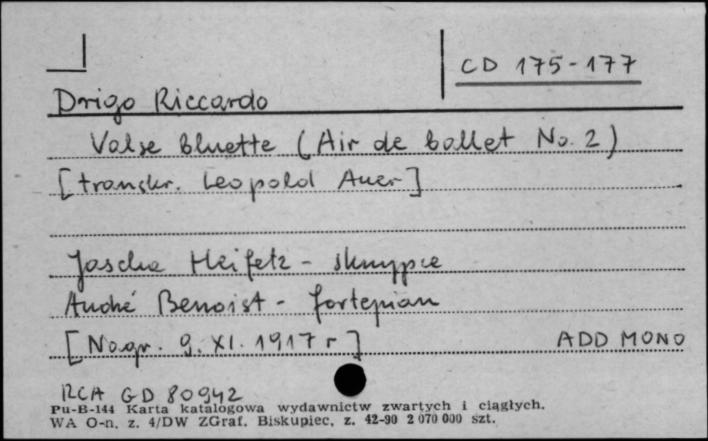 CD 175-177
Drigo Riccardo
Valse bluette (Air de ballet No. 2)
[transkr. Leopold Auer]
Jascha Heifetz - skrzypce
André Benoist - fortepian
[Nagr. 9. XI. 1917 r]
ADD MONO
RCA GD 80942
Pu-B-144 Karta katalogowa wydawnictw zwartych i ciągłych.
WA O-n. z. 4/DW ZGraf. Biskupiec, z. 42-90 2 070 000 szt.